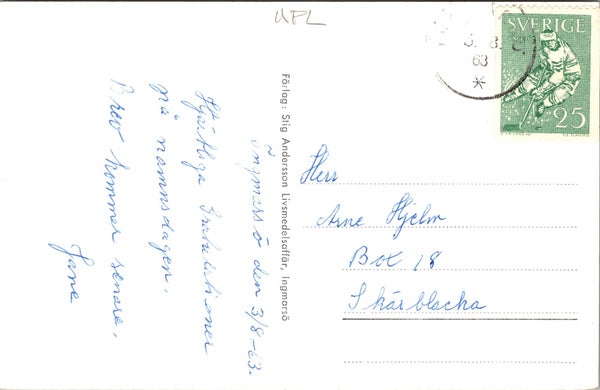 UPL
SVERIGE
25
63
Förlag: Stig Andersson Livsmedelsaffär, Ingmarsö
Ingmarsö den 3/8-63.
Hjärtliga Gratulationer
på namnsdagen.
Brev kommer senare.
Jane
Herr
Arne Hjelm
Box 18
Skärblacka